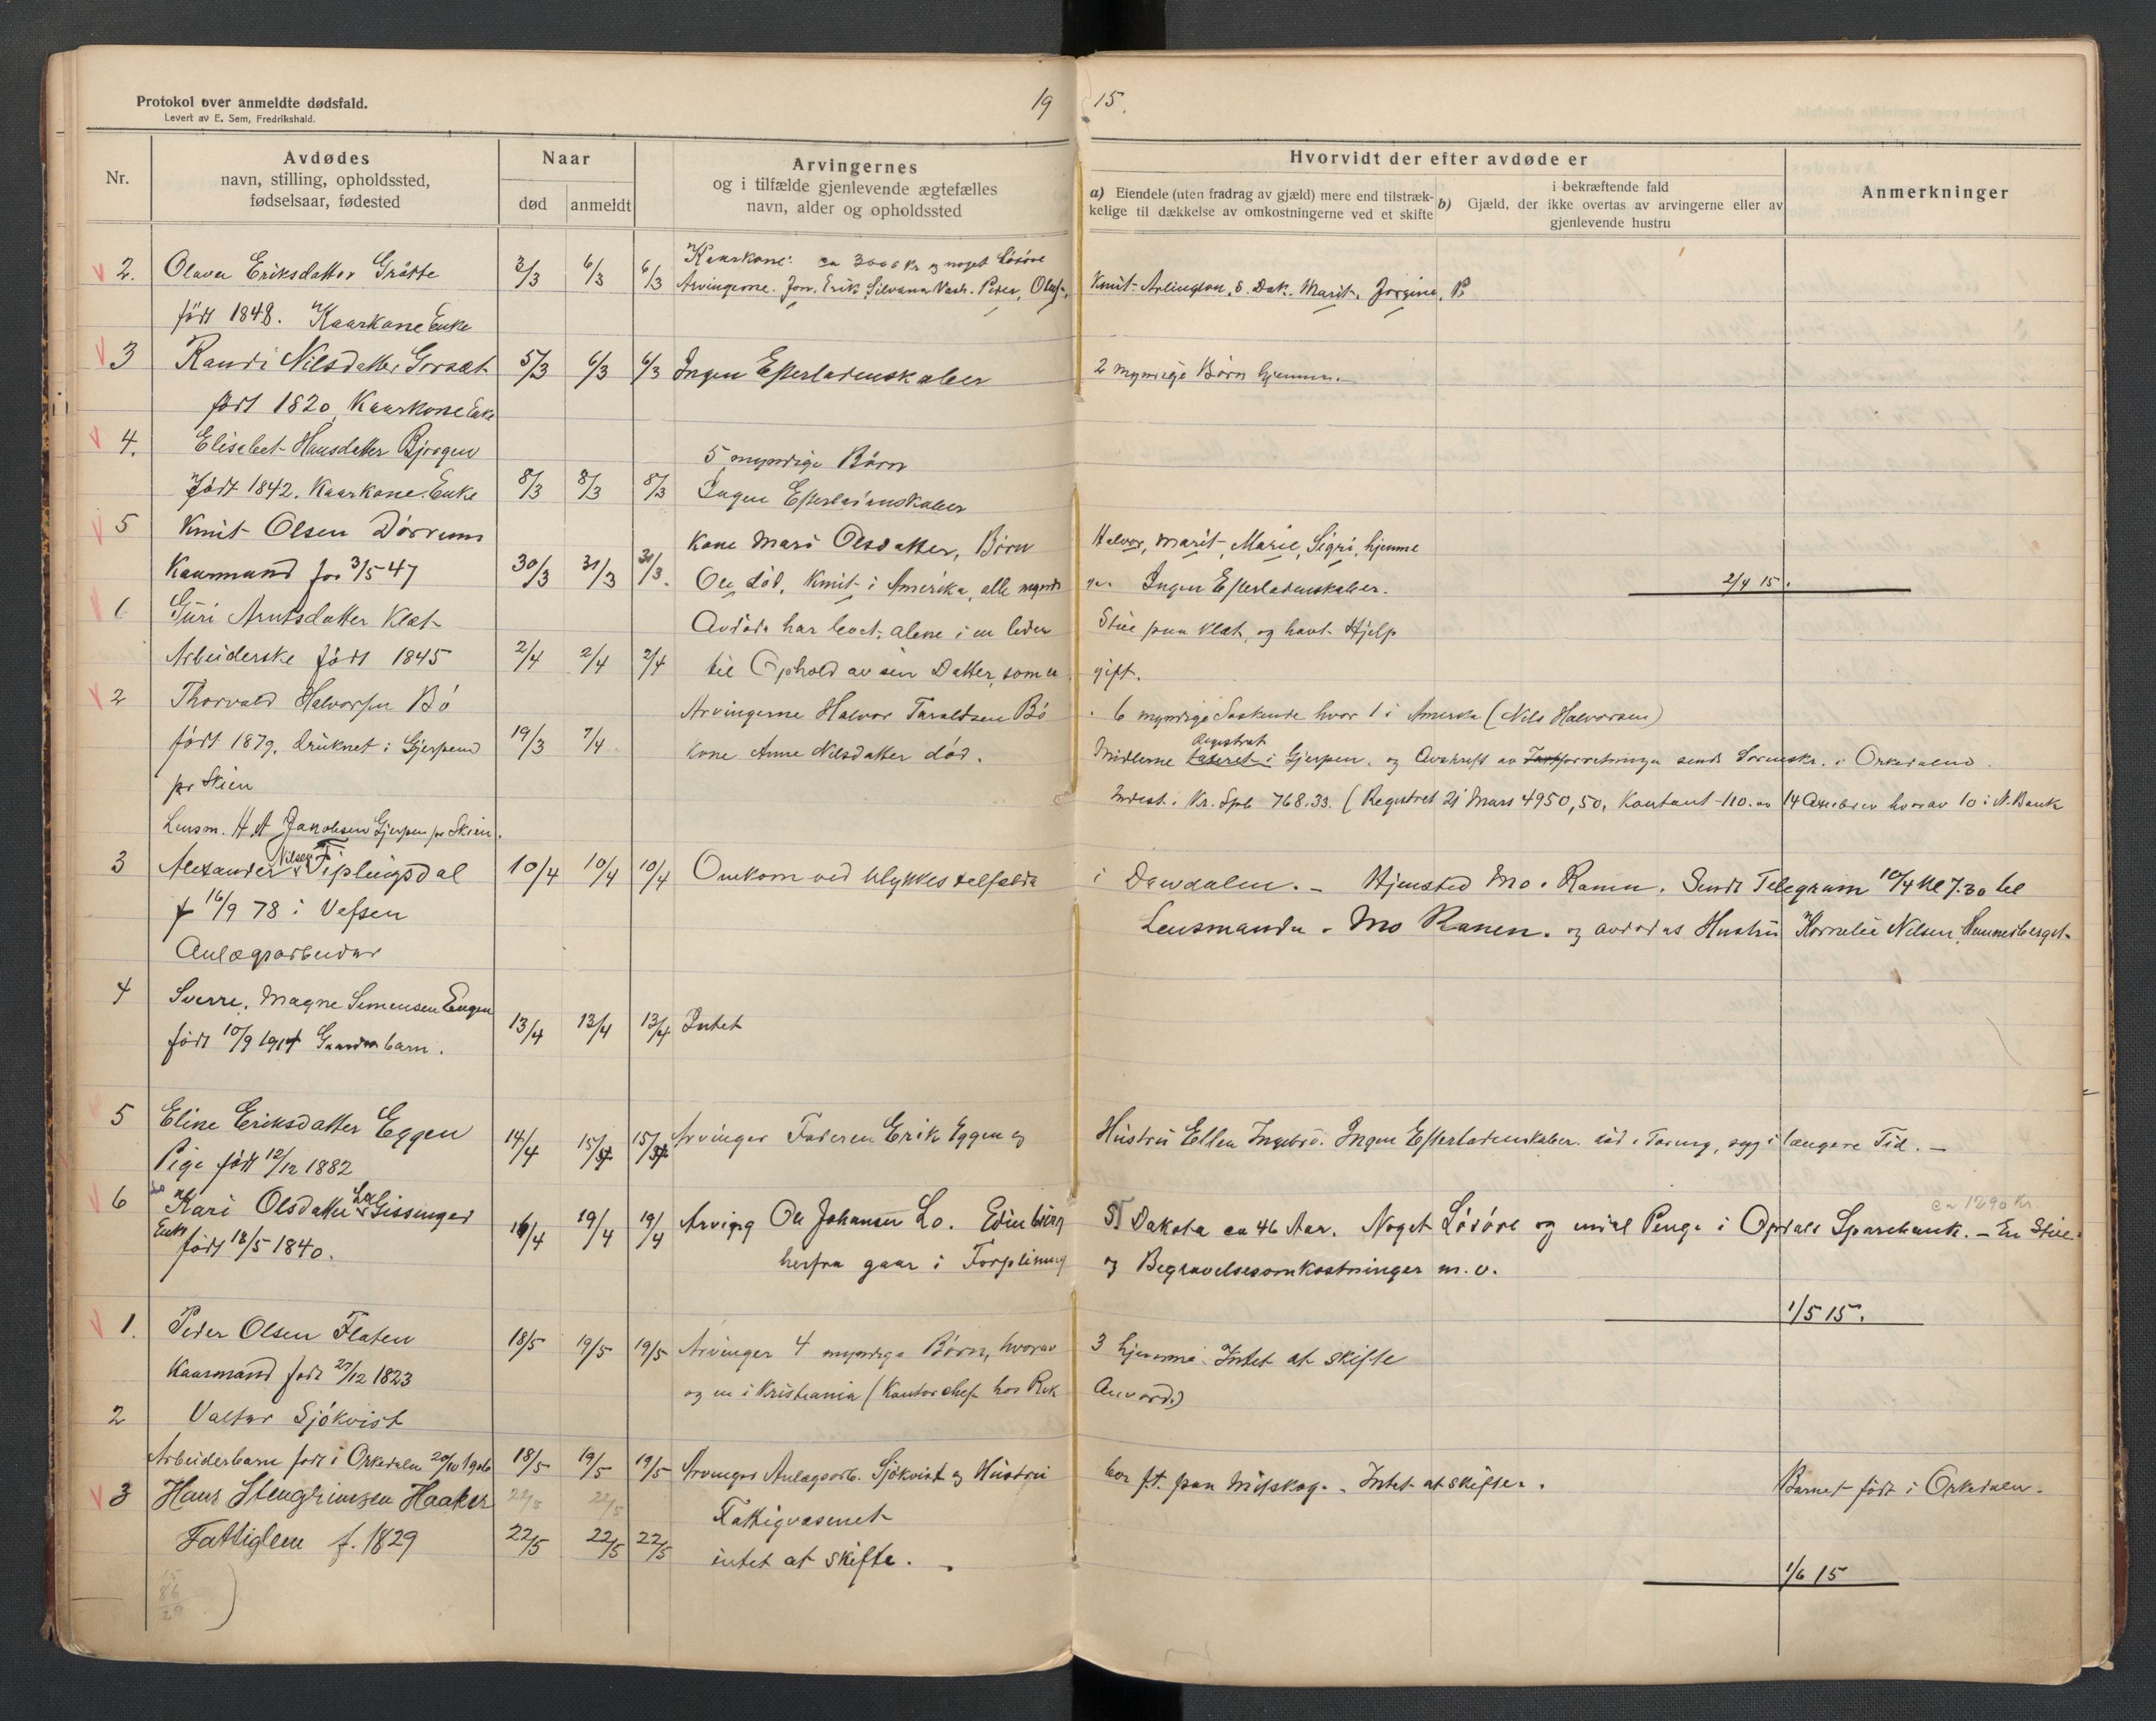 Protokol over anmeldte dødsfald.
Levert av E. Sem, Fredrikshald.
19 15.
Nr.
Avdødes
navn, stilling, opholdssted,
fødselsaar, fødested
Naar
død anmeldt
Arvingernes
og i tilfælde gjenlevende ægtefælles
navn, alder og opholdssted
Hvorvidt der efter avdøde er
a) Eiendele (uten fradrag av gjæld) mere end tilstræk-
kelige til dækkelse av omkostningerne ved et skifte
i bekræftende fald
b) Gjæld, der ikke overtas av arvingerne eller av
gjenlevende hustru
Anmerkninger
Kaarkone: ca 3000 Kr og noget Løsøre
2. Olava Eriksdatter Gråtte 3/3 6/3 6/3 Arvingerne. Jon, Erik, Silvana Vash. Peder, Oluf, Knut Arlington, S. Dak. Marit, Jorgine,
født 1848. Kaarkone Enke
3 Randi Nilsdatter Gorsæt 5/3 6/3 6/3 Ingen Efterladenskaber 2 myndige Børn hjemme.
født 1820, Kaarkone Enke
4. Elisabet Hansdatter Bjørgen 5 myndige Børn
født 1842. Kaarkone. Enke 8/3 8/3 8/3 Ingen Efterladenskaber
5 Knut Olsen Dørrem Kone Mari Olsdatter, Børn Halvor, Marit, Marie, Sigri, hjemme
Kaarmand før 3/5 47 30/3 31/3 31/3. Ole død, Knut i Amerika, alle mynd- ge. Ingen Efterladenskaber. 2/4 15.
1 Guri Arntsdatter Klæt Avdøde har levet alene i en liden Stue paa Klæt, og havt Hjelp
Arbeiderske født 1845 2/4 2/4 2/4 til Ophold av sin Datter, som er gift.
2 Thorvald Halvorsen Bø Arvingerne Halvor Taraldsen Bø. 6 myndige Søskende hvor 1 i Amerika (Nils Halvorsen)
født 1879, druknet i Gjerpen 19/3 7/4 Kone Anne Nilsdatter død. Midlerne taxeret Registrert i Gjerpen, og Avskrift av forretningen sendt Sorenskr. i Orkedalen.
pr Skien Indest. i Kr. Spb 768.33. (Registret 21 Mars 4950,50, Kontant 110.00 14 hvorav 10 i N. Bank
Lensm. H. A Jakobsen Gjerpen pr Skien.
3 Alexander Nilsen Tiplingsdal 10/4 10/4 10/4 Omkom ved Ulykkestilfælde i Drivdalen. – Hjemsted Mo i Ranen. Sendt Telegram 10/4 Kl 7.30 til
f 16/9 78 i Vefsen Lensmanden i Mo Ranen. og avdødes Hustru Kornelie Nilsen, Hemnesberget.
Anlægsarbeider
4 Sverre, Magne Simensen Engen
født 10/9 1914 Gaardm barn. 13/4 13/4 13/4 Intet
5 Eline Eriksdatter Eggen 14/4 15/4 15/4 Arvinger Faderen Erik Eggen og Hustru Ellen Ingebr. Ingen Efterladenskaber. død i Tæring, syg i længere Tid. –
Pige født 12/12 1882
6 Kari Olsdatter Lo Gissinger 16/4 19/4 19/4 Arving Ole Johansen Lo. Edinburg N Dakota ca 46 Aar. Noget Løsøre og endel Penge i Opdals Sparebank. – En Stue. ca 1290 Kr.
Enke født 18/5 1840. herfra gaar i Forpleining og Begravelsesomkostninger m. v.
1/5 15.
1. Peder Olsen Flaten 18/5 19/5 19/5 Arvinger 4 myndige Børn, hvorav 3 hjemme. Intet at skifte
Kaarmand født 27/12 1823 og en i Kristiania (Kontorchef hos
2 Valter Sjökvist
Arbeiderbarn født i Orkedalen 20/10 1906 18/5 19/5 19/5 Arvinger Anlægsarb. Sjökvist og Hustru bor f.t. paa Mjöskog. – Intet at skifte. Barnet født i Orkedalen.
3 Hans Stengrimsen Haaker 22/5 22/5 Fattigvæsenet
Fattiglem f. 1829 22/5 22/5 22/5 intet at skifte.
1/6 15
15
86
29